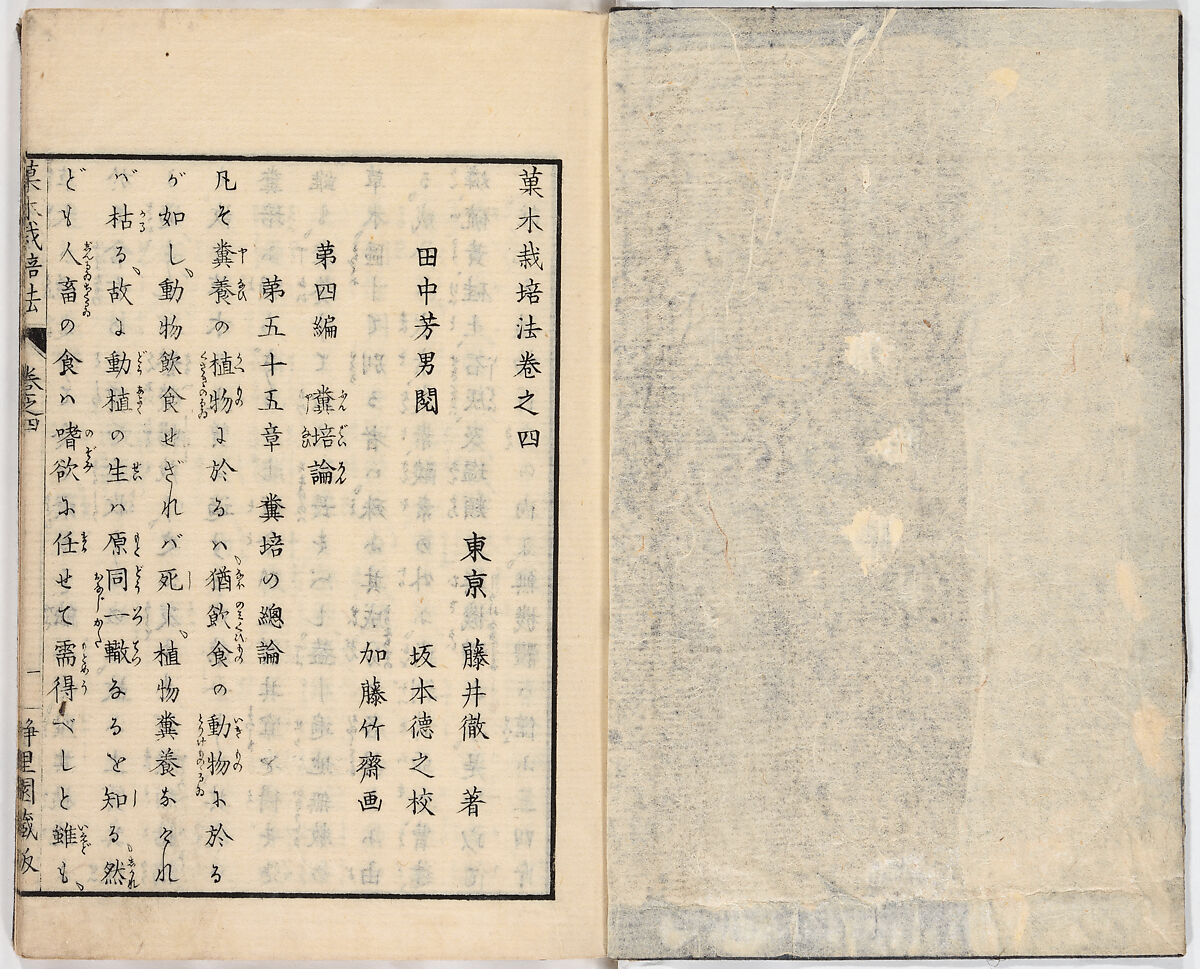 菓木栽培法卷之四
東京 藤井徹 著
田中芳男閲 坂本德之校
加藤竹齋画
第四編 糞培論
第五十五章 糞培の總論
凡そ糞養の植物に於るハ猶飲食の動物に於る
が如し、動物飲食せざれバ死し、植物糞養なけれ
バ枯る、故に動植の生ハ原同一轍なるを知る、然
ども人畜の食ハ嗜欲に任せて需得べしと雖も、
菓木栽培法 卷之四 一 静里園藏版